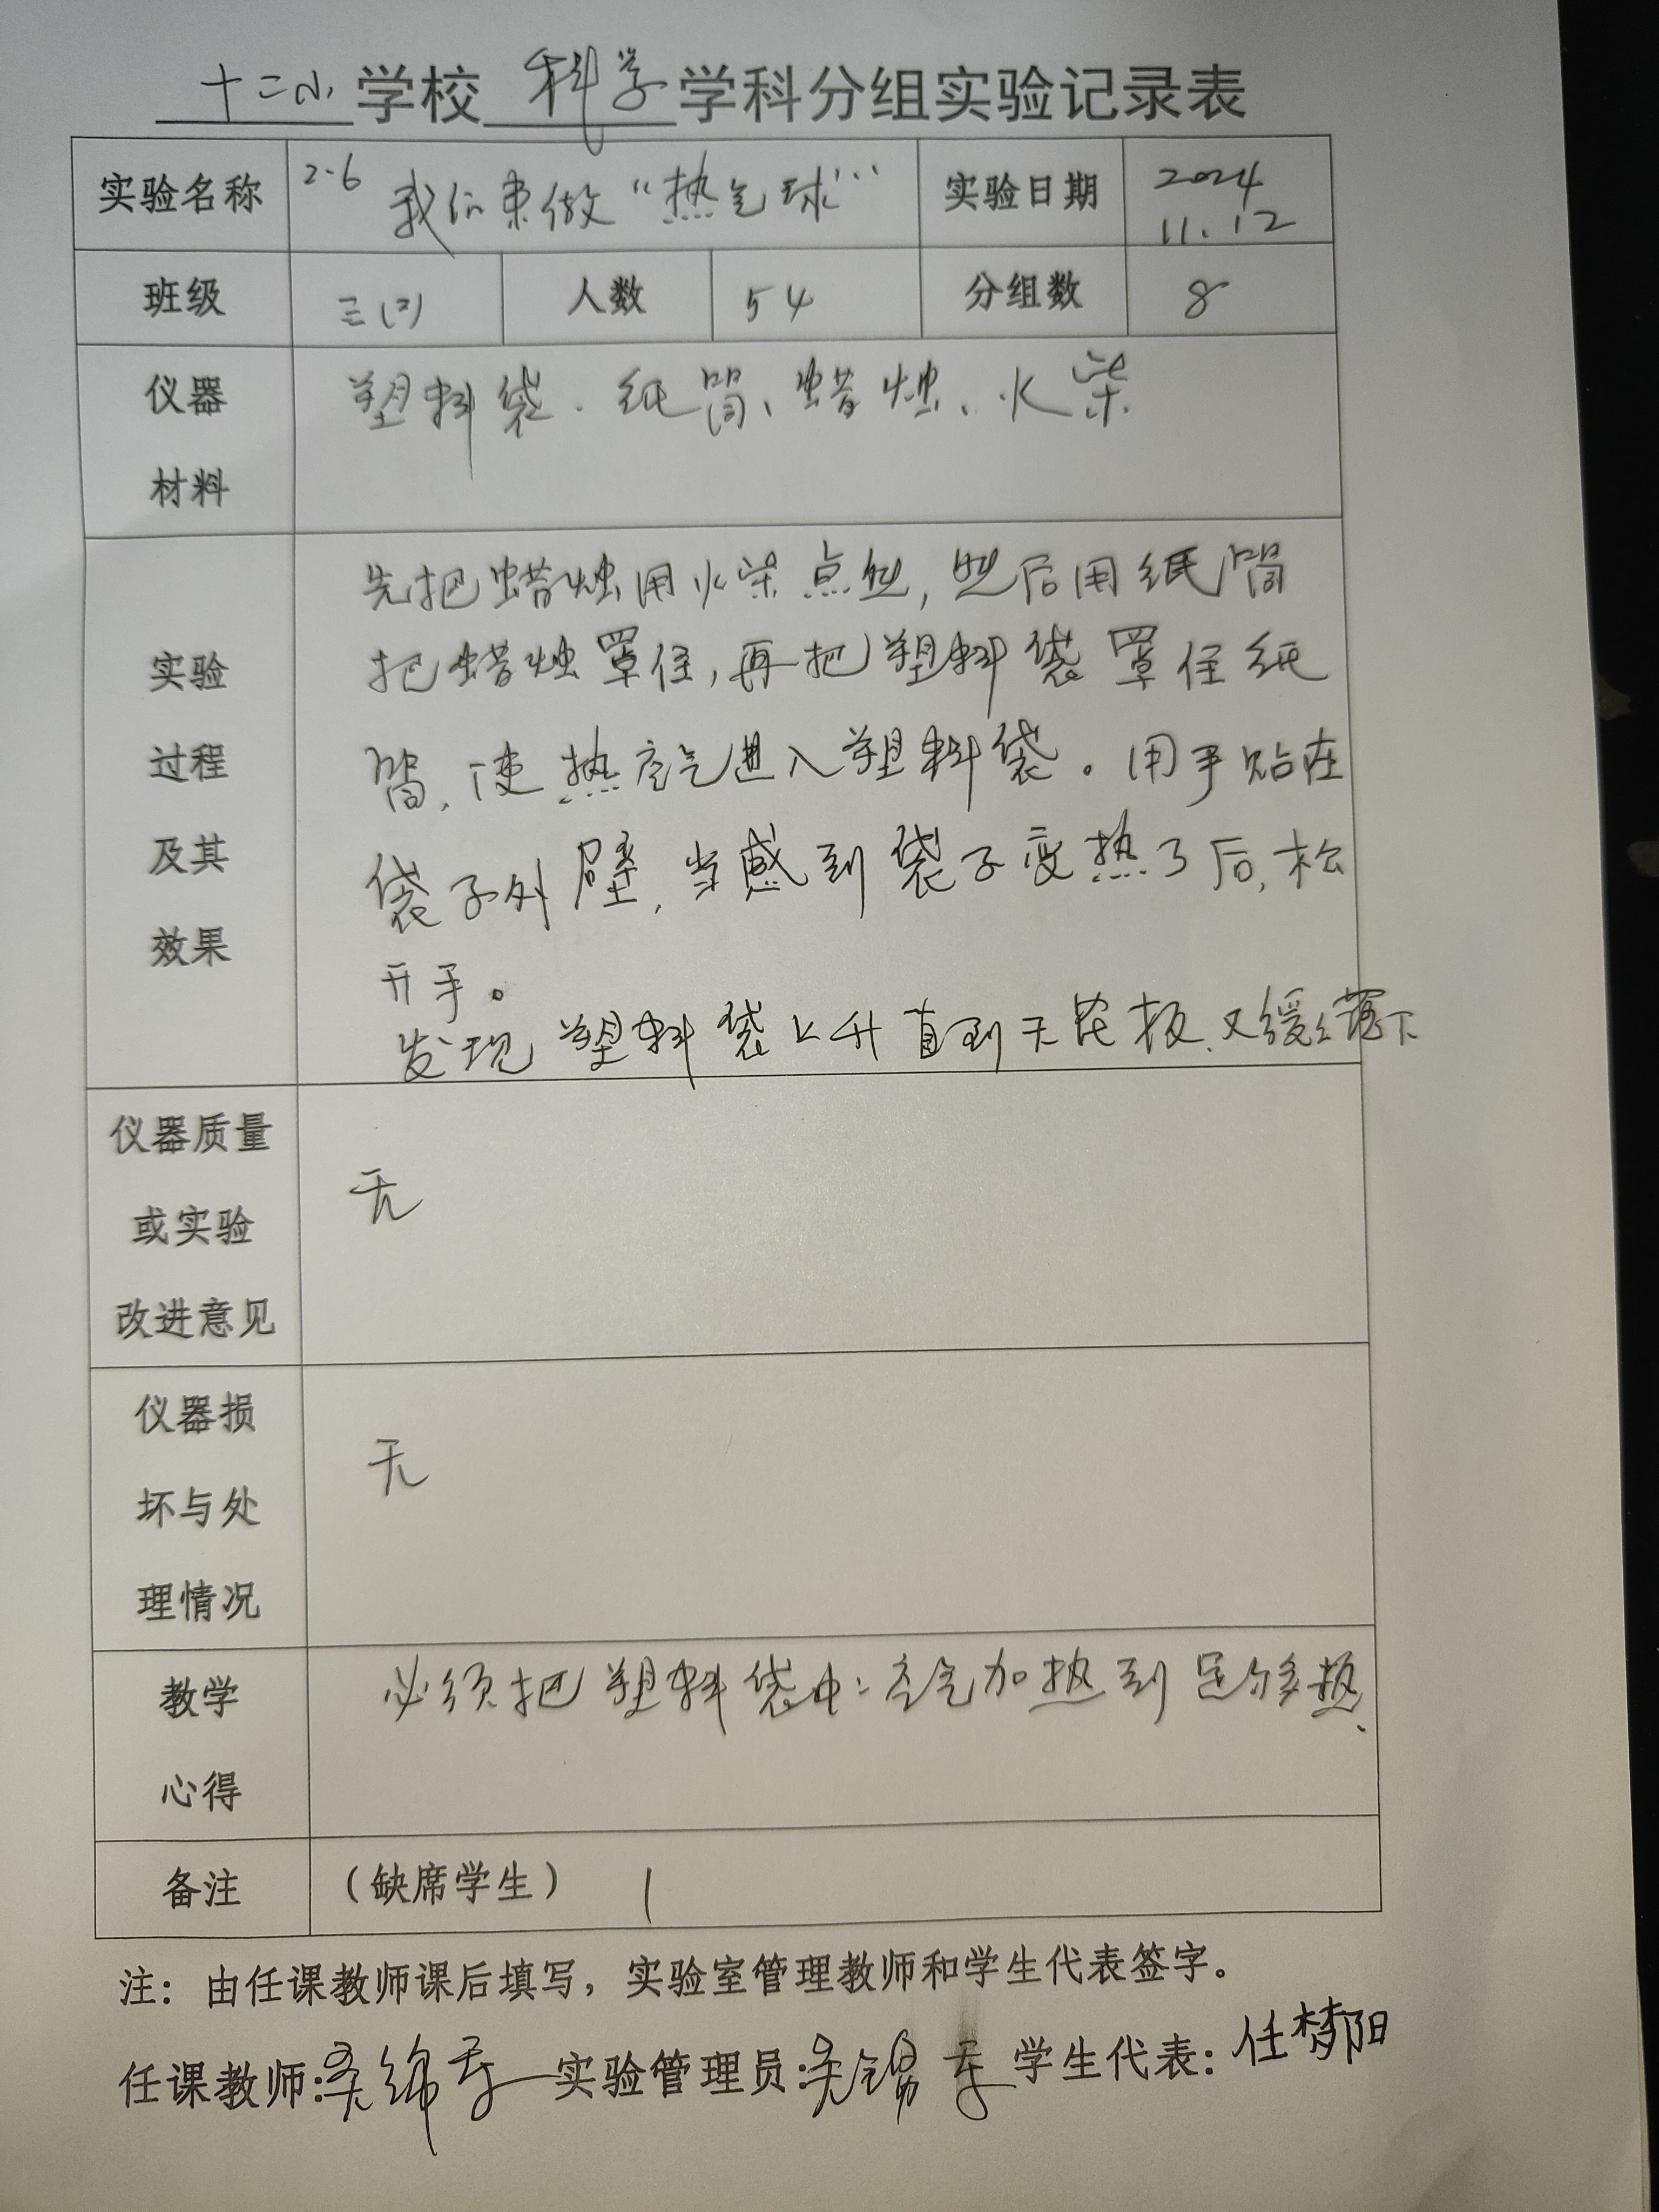 十二小学校科学学科分组实验记录表
实验名称 2.6 我们来做“热气球” 实验日期 2024 11.12
班级 三(2) 人数 54 分组数 8
仪器材料 塑料袋、纸筒、蜡烛、火柴
实验过程及其效果
先把蜡烛用火柴点燃,然后用纸筒
把蜡烛罩住,再把塑料袋罩住纸
筒,使热空气进入塑料袋。用手贴在
袋子外壁,当感到袋子变热了后,松
开手。
发现塑料袋上升直到天花板,又缓缓落下
仪器质量或实验改进意见 无
仪器损坏与处理情况 无
教学心得 必须把塑料袋中空气加热到足够热、
备注 (缺席学生) 1
注:由任课教师课后填写,实验室管理教师和学生代表签字。
任课教师: 实验管理员: 学生代表:任梦阳